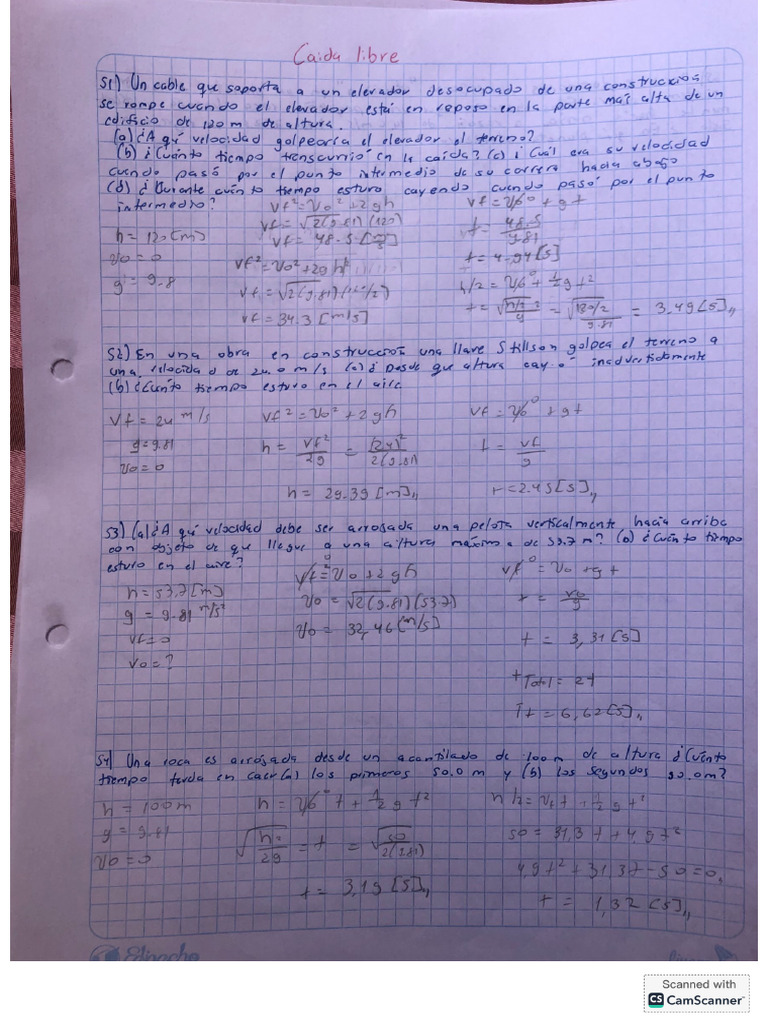 Caida libre
51) Un cable que soporta a un elevador desocupado de una construcción
se rompe cuando el elevador está en reposo en la parte mas alta de un
edificio de 120 m de altura.
(a) ¿A qué velocidad golpearía el elevador el terreno?
(b) ¿Cuánto tiempo transcurrió en la caída? (c) ¿Cuál era su velocidad
cuando pasó por el punto intermedio de su carrera hacia abajo
(d) ¿Durante cuánto tiempo estuvo cayendo cuando pasó por el punto
intermedio?
h = 120 [m]
vo = 0
g = 9.8
Vf² = Vo² + 2gh
Vf = √2(9.81)(120)
Vf = 48.5 [m/s]
Vf² = Vo² + 2gh
Vf = √2(9.81)(120/2)
Vf = 34.3 [m/s]
Vf = Vo⁰ + gt
t = 48.5/9.81
t = 4.94 [s]
h/2 = Vo⁰ + 1/2 g t²
= 3,49 [s]
52) En una obra en construcción una llave Stillson golpea el terreno a
una velocidad de 24.0 m/s (a) ¿Desde que altura cayó inadvertidamente
(b) ¿Cuánto tiempo estuvo en el aire
Vf = 24 m/s
g = 9.81
Vo = 0
Vf² = Vo² + 2gh
h = Vf²/2g = (24)²/2(9.81)
h = 29.39 [m]
Vf = Vo⁰ + gt
t = Vf/g
t = 2.45 [s]
53) (a) ¿A qué velocidad debe ser arrojada una pelota verticalmente hacia arriba
con objeto de que llegue a una altura máxima de 53.7 m? (b) ¿Cuánto tiempo
estuvo en el aire?
h = 53.7 [m]
g = 9.81 m/s²
Vf = 0
Vo = ?
Vf² = Vo + 2gh
Vo = √2(9.81)(53.7)
Vo = 32,46 [m/s]
Vf⁰ = Vo + gt
t = Vo/g
t = 3,31 [s]
tTotal = 2t
Tt = 6,62 [s]
54) Una roca es arrojada desde un acantilado de 100m de altura ¿Cuánto
tiempo tarda en caer (a) los primeros 50.0 m y (b) los segundos 50.0m?
h = 100m
g = 9.81
Vo = 0
h = Vo⁰ t + 1/2 g t²
= t = √50/2(9.81)
t = 3,19 [s]
h/2 = Vo t + 1/2 g t²
50 = 31,3 t + 4.9 t²
4.9 t² + 31,3t - 50 = 0
t = 1,32 [s]
Scanned with
CS CamScanner